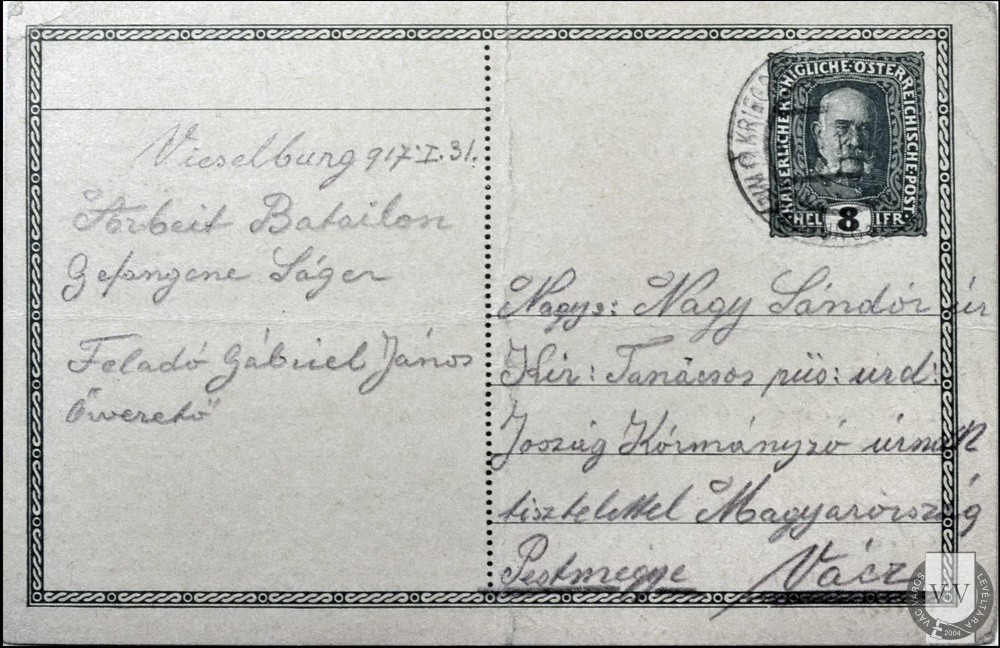 Vieselburg 917.I.31.
Arbeit Batailon
Gefangene Láger
Feladó Gábriel János
KAISERLICHE KÖNIGLICHE ÖSTERREICHISCHE POST
HEL 8 LFR
Nagys: Nagy Sándór úr
Kir: Tanácsos püs: urd:
Joszág Kórmányzó úrnak
tisztelettel Magyarország
Pestmegye Vácz
VÁC VÁROS LEVÉLTÁRA
VV
2004